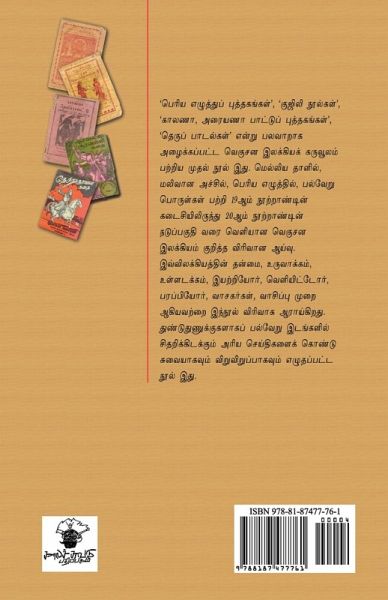 ‘பெரிய எழுத்துப் புத்தகங்கள்’, ‘குஜிலி நூல்கள்’,
‘காலணா, அரையணா பாட்டுப் புத்தகங்கள்’,
‘தெருப் பாடல்கள்’ என்று பலவாறாக
அழைக்கப்பட்ட வெகுசன இலக்கியக் கருவூலம்
பற்றிய முதல் நூல் இது. மெல்லிய தாளில்,
மலிவான அச்சில், பெரிய எழுத்தில், பல்வேறு
பொருள்கள் பற்றி 19ஆம் நூற்றாண்டின்
கடைசியிலிருந்து 20ஆம் நூற்றாண்டின்
நடுப்பகுதி வரை வெளியான வெகுசன
இலக்கியம் குறித்த விரிவான ஆய்வு.
இவ்விலக்கியத்தின் தன்மை, உருவாக்கம்,
உள்ளடக்கம், இயற்றியோர், வெளியிட்டோர்,
பரப்பியோர், வாசகர்கள், வாசிப்பு முறை
ஆகியவற்றை இந்நூல் விரிவாக ஆராய்கிறது.
துண்டுதுணுக்குகளாகப் பல்வேறு இடங்களில்
சிதறிக்கிடக்கும் அரிய செய்திகளைக் கொண்டு
சுவையாகவும் விறுவிறுப்பாகவும் எழுதப்பட்ட
நூல் இது.
ISBN 978-81-87477-76-1
00004
9 788187 477761
காலச்சுவடு
பதிப்பகம்